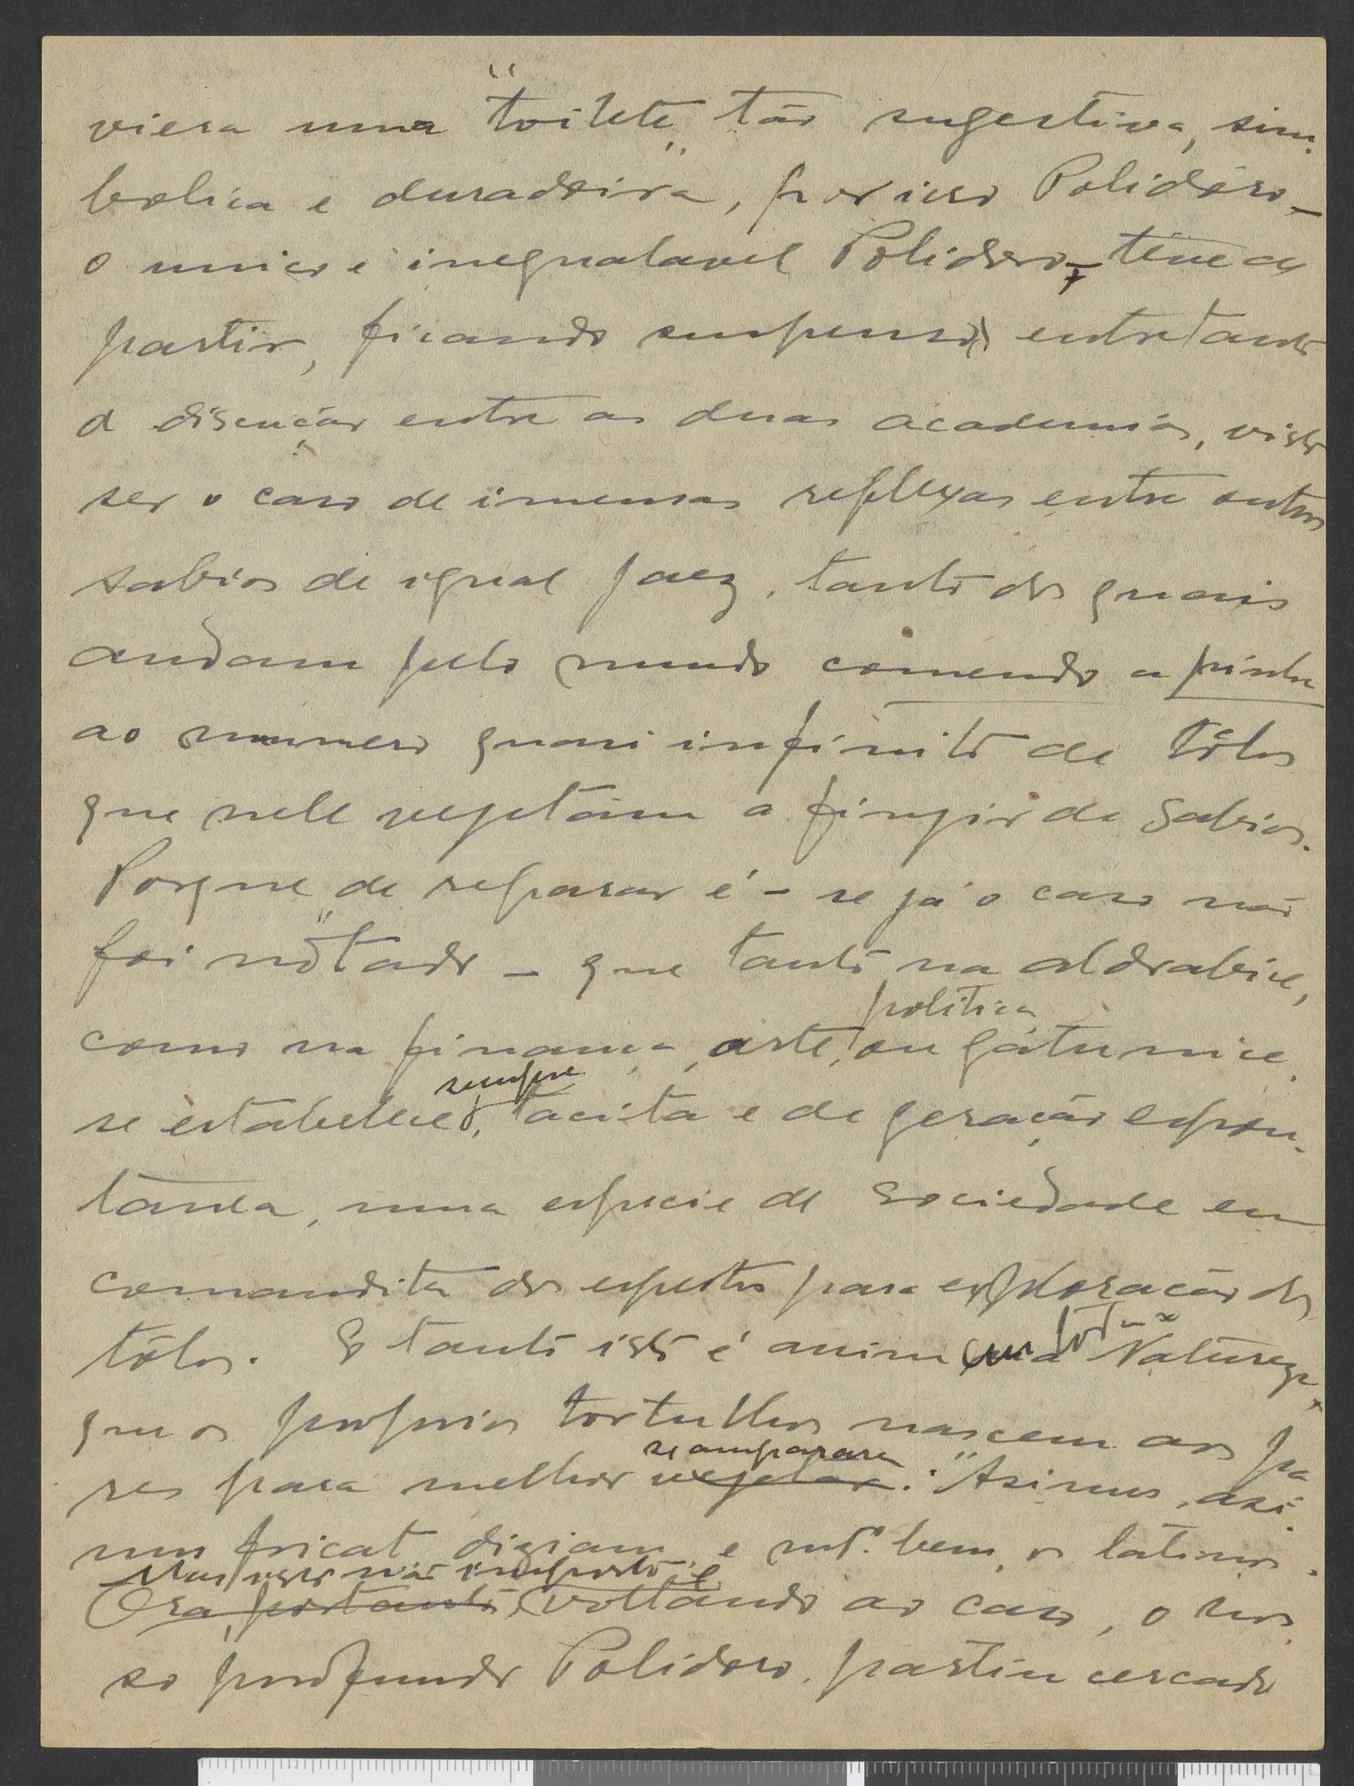 viera uma "toilete" tão sugestiva, sim-
bolica e duradoira, por isso Polidoro -
o unico e inegualavel Polidoro - teve de
partir, ficando suspensa entretanto
a discução entre as duas academias, visto
ser o caso de imensas reflexas entre outros
sabios de igual jaez, tanto dos quais
andam pelo mundo comendo a pinha
ao numero quasi infinito de tôlos
que nele vegetam a fingir de Sabios.
Porque de reparar é - se já o caso não
foi nótado - que tanto na aldrabice,
como na finança, arte, politica ou gatunice,
se estabelece sempre, tacita e de geração espon-
tanea, uma especie de Sociedade em
comandita dos espertos para exploração dos
tôlos. E tanto isto é assim em toda a Natureza,
que os proprios tortulhos nascem aos pa
res para melhor vegetar se ampararem: "Asinus, asi-
num fricat" diziam, e mt.º bem, os latinos.
Ora, portanto, Mas isso não importa e voltando ao caso, o nos-
so profundo Polidoro partiu cercado